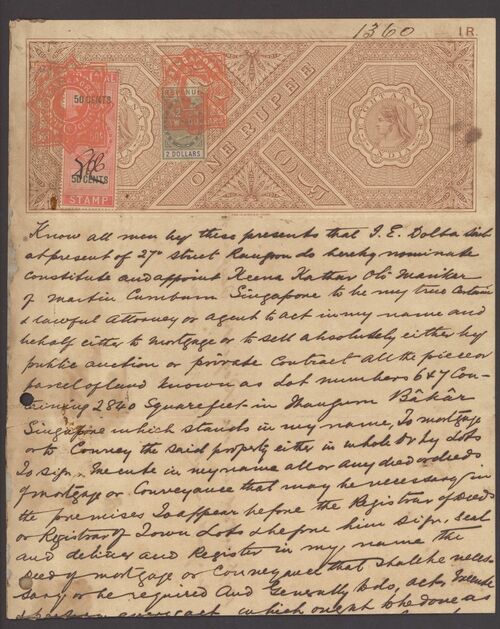 1360
1 R.
50 CENTS
50 CENTS
STAMP
REVENUE
2 DOLLARS
ONE RUPEE
INDIA
Know all men by these presents that I. E. Dolta
at present of 27th street Rangoon do hereby nominate
constitute and appoint Keena Kathar Oli Maricar
of Martin Singapore to be my true certain
& lawful Attorney or agent to act in my name and
behalf either to mortgage or to sell absolutely either by
public auction or private Contract all the piece or
parcel of land known as Lot numbers 6 & 7 Con-
taining 2840 Square feet in Bâkâr
Singapore which stands in my name, To mortgage
or to Convey the said property either in whole or by Lots
To sign, Execute in my name all or any deed or deeds
of mortgage or Conveyance that may be necessary in
the premises To appear before the Registrar of Deeds
or Registrar of Town Lots & before him sign, seal
and deliver and Register in my name the
deed of mortgage or Conveyance that shall be neces-
sary or be required And Generally to do, act, Execute
which ought to be done as